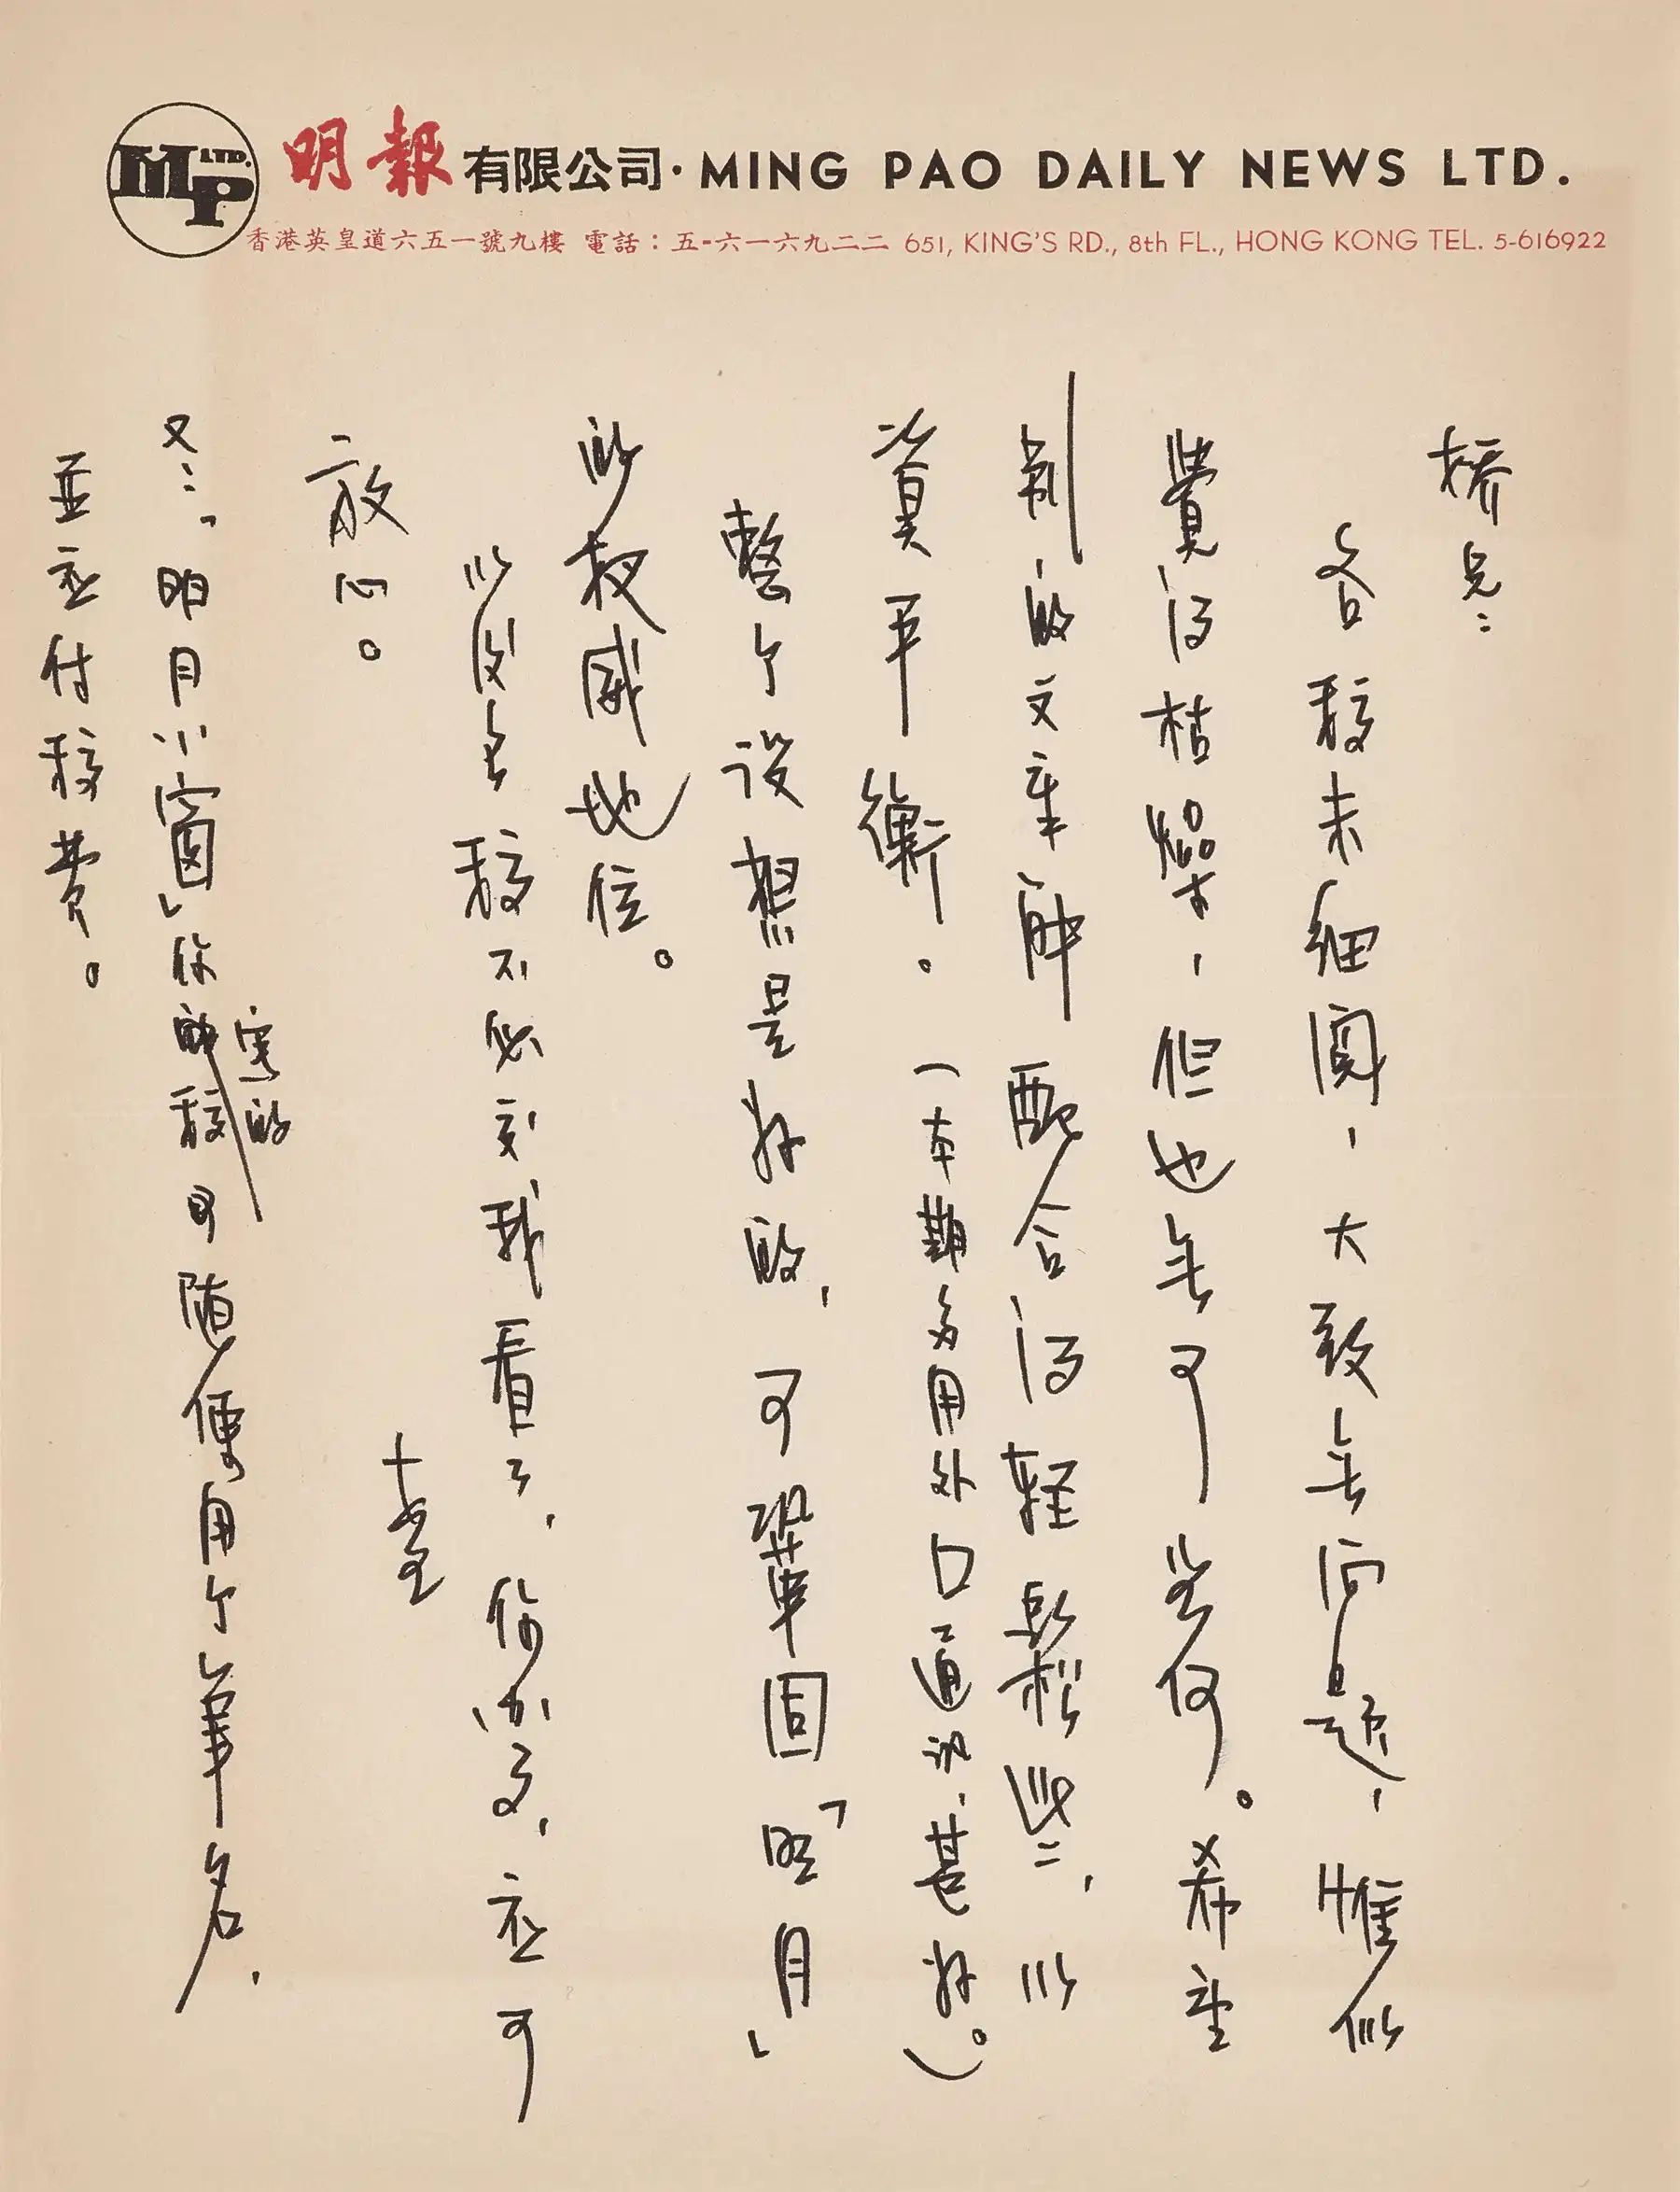 MP LTD.
明報有限公司·MING PAO DAILY NEWS LTD.
香港英皇道六五一號九樓 電話：五-六一六九二二 651, KING'S RD., 8th FL., HONG KONG TEL. 5-616922
橋兄：
各稿未細閱，大致无问題，惟似
覺得枯燥，但也无可奈何。希望
别的文章能配合得轻鬆些，以
資平衡。（本期多用外口通訊，甚好。）
整个设想是好的，可鞏固「明月」
的权威地位。
以後各稿不必交我看了，你办了，应可
放心。
又：「明月小窗」你写的可随便用个筆名，
並应付稿費。